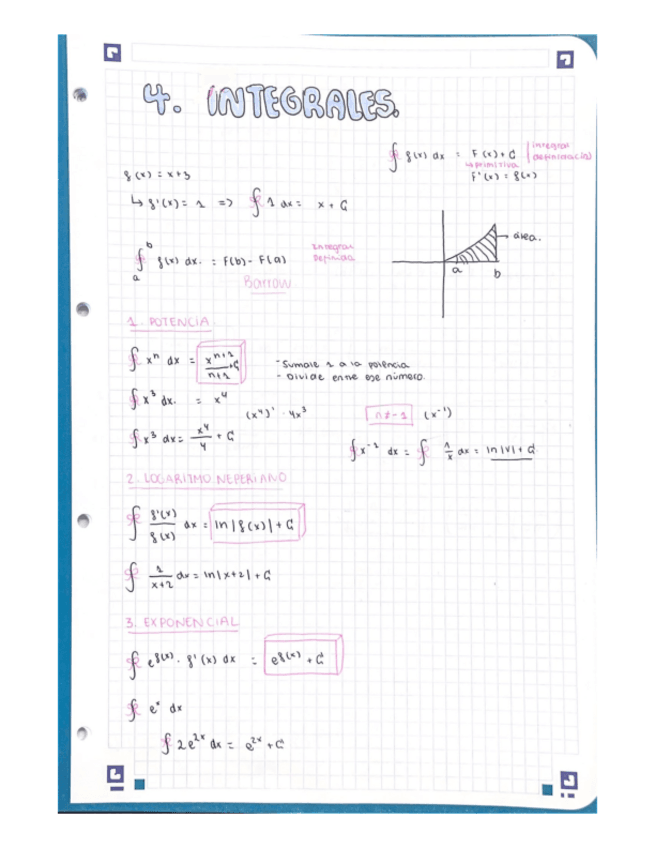 4. INTEGRALES.
∫ f(x) dx = F(x) + C | integral
↳ primitiva
F'(x) = f(x)
f(x) = x+3
↳ f'(x) = 1 => ∫ 1 dx = x + C
∫ₐᵇ f(x) dx. = F(b) - F(a) Integral Definida
Barrow
área.
a b
1. POTENCIA
∫ xⁿ dx = xⁿ⁺¹/n+1 + C
- Sumale 1 a la potencia
- Divide entre ese número.
∫ x³ dx. = x⁴
(x⁴)' = 4x³
n≠-1 (x⁻¹)
∫ x³ dx = x⁴/4 + C
∫ x⁻¹ dx = ∫ 1/x dx = ln|x| + C
2. LOGARITMO NEPERIANO
∫ f'(x)/f(x) dx = ln|f(x)| + C
∫ 1/x+2 dx = ln|x+2| + C
3. EXPONENCIAL
∫ e^f(x) · f'(x) dx = e^f(x) + C
∫ eˣ dx
∫ 2e²ˣ dx = e²ˣ + C